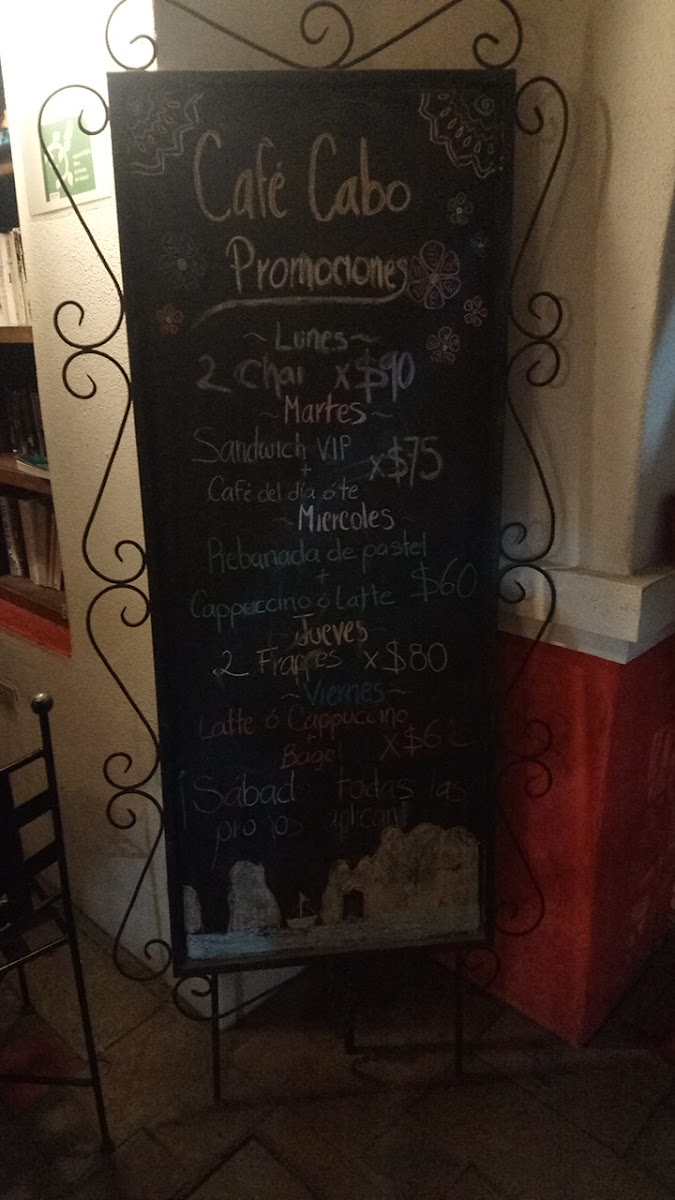 Café Cabo
Promociones
~Lunes~
2 Chai x$90
~Martes~
Sandwich VIP
+
x$75
Café del día ó te
~Miercoles
Rebanada de pastel
+
Cappuccino ó Latte $60
Jueves
2 Frappes x$80
~Viernes~
Latte ó Cappuccino
+
Bagel
¡Sábado todas las
aplican!